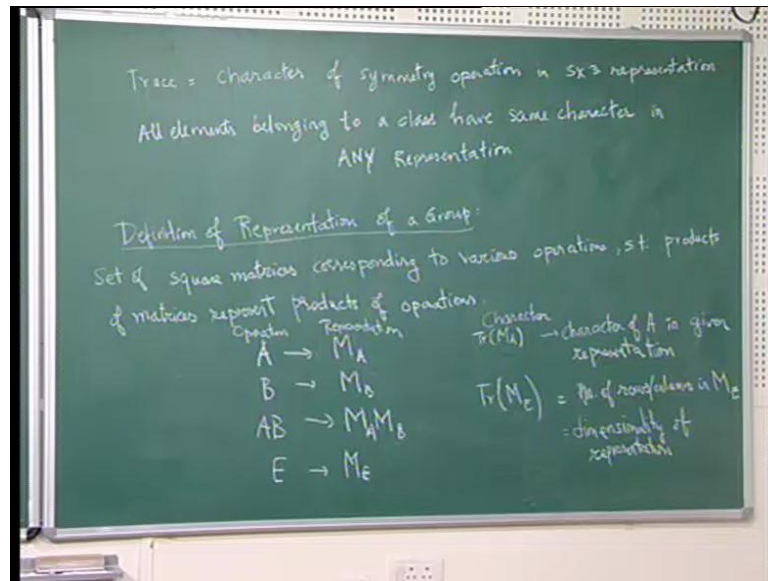 Trace = character of symmetry operation in 3x3 representation
All elements belonging to a class have same character in
ANY Representation
Definition of Representation of a Group:
Set of square matrices corresponding to various operations, s.t. products
of matrices represent products of operations.
Operation Representation
A → M_A
B → M_B
AB → M_A M_B
E → M_E
Character
Tr(M_A) → character of A in given
representation
Tr(M_E) = No. of rows/columns in M_E
= dimensionality of
representation